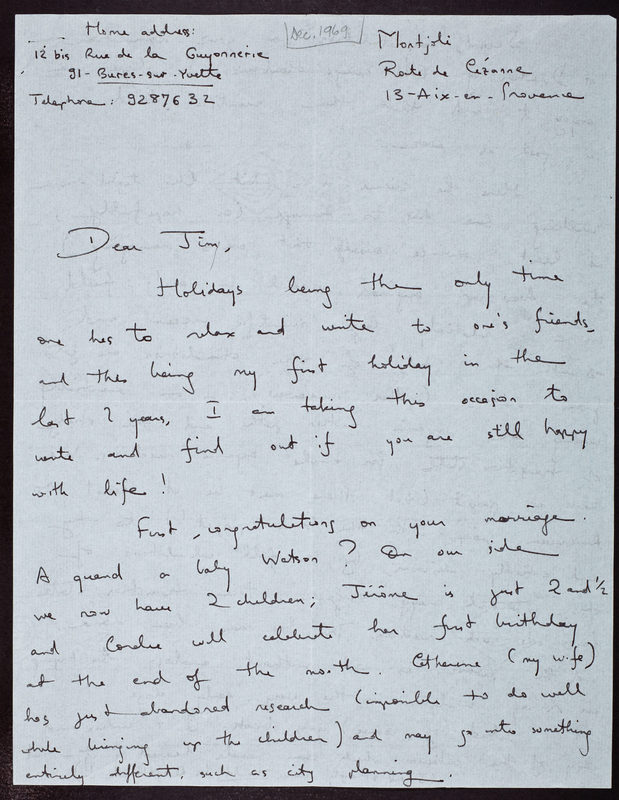 Home address:
12 bis Rue de la Guyonnerie
91- Bures-sur-Yvette
Telephone: 9287632
Dec. 1969
Montjoli
Route de Cézanne
13-Aix-en-Provence
Dear Jim,
Holidays being the only time
one has to relax and write to one's friends
and this being my first holiday in the
last 2 years, I am taking this occasion to
write and find out if you are still happy
with life!
First, congratulations on your marriage.
A quand a baby Watson? On our side
we now have 2 children; Jérôme is just 2 and 1/2
and will celebrate her first birthday
at the end of the month. Catherine (my wife)
has just abandoned research (impossible to do well
while bringing up the children) and may go into something
entirely different, such as city planning.